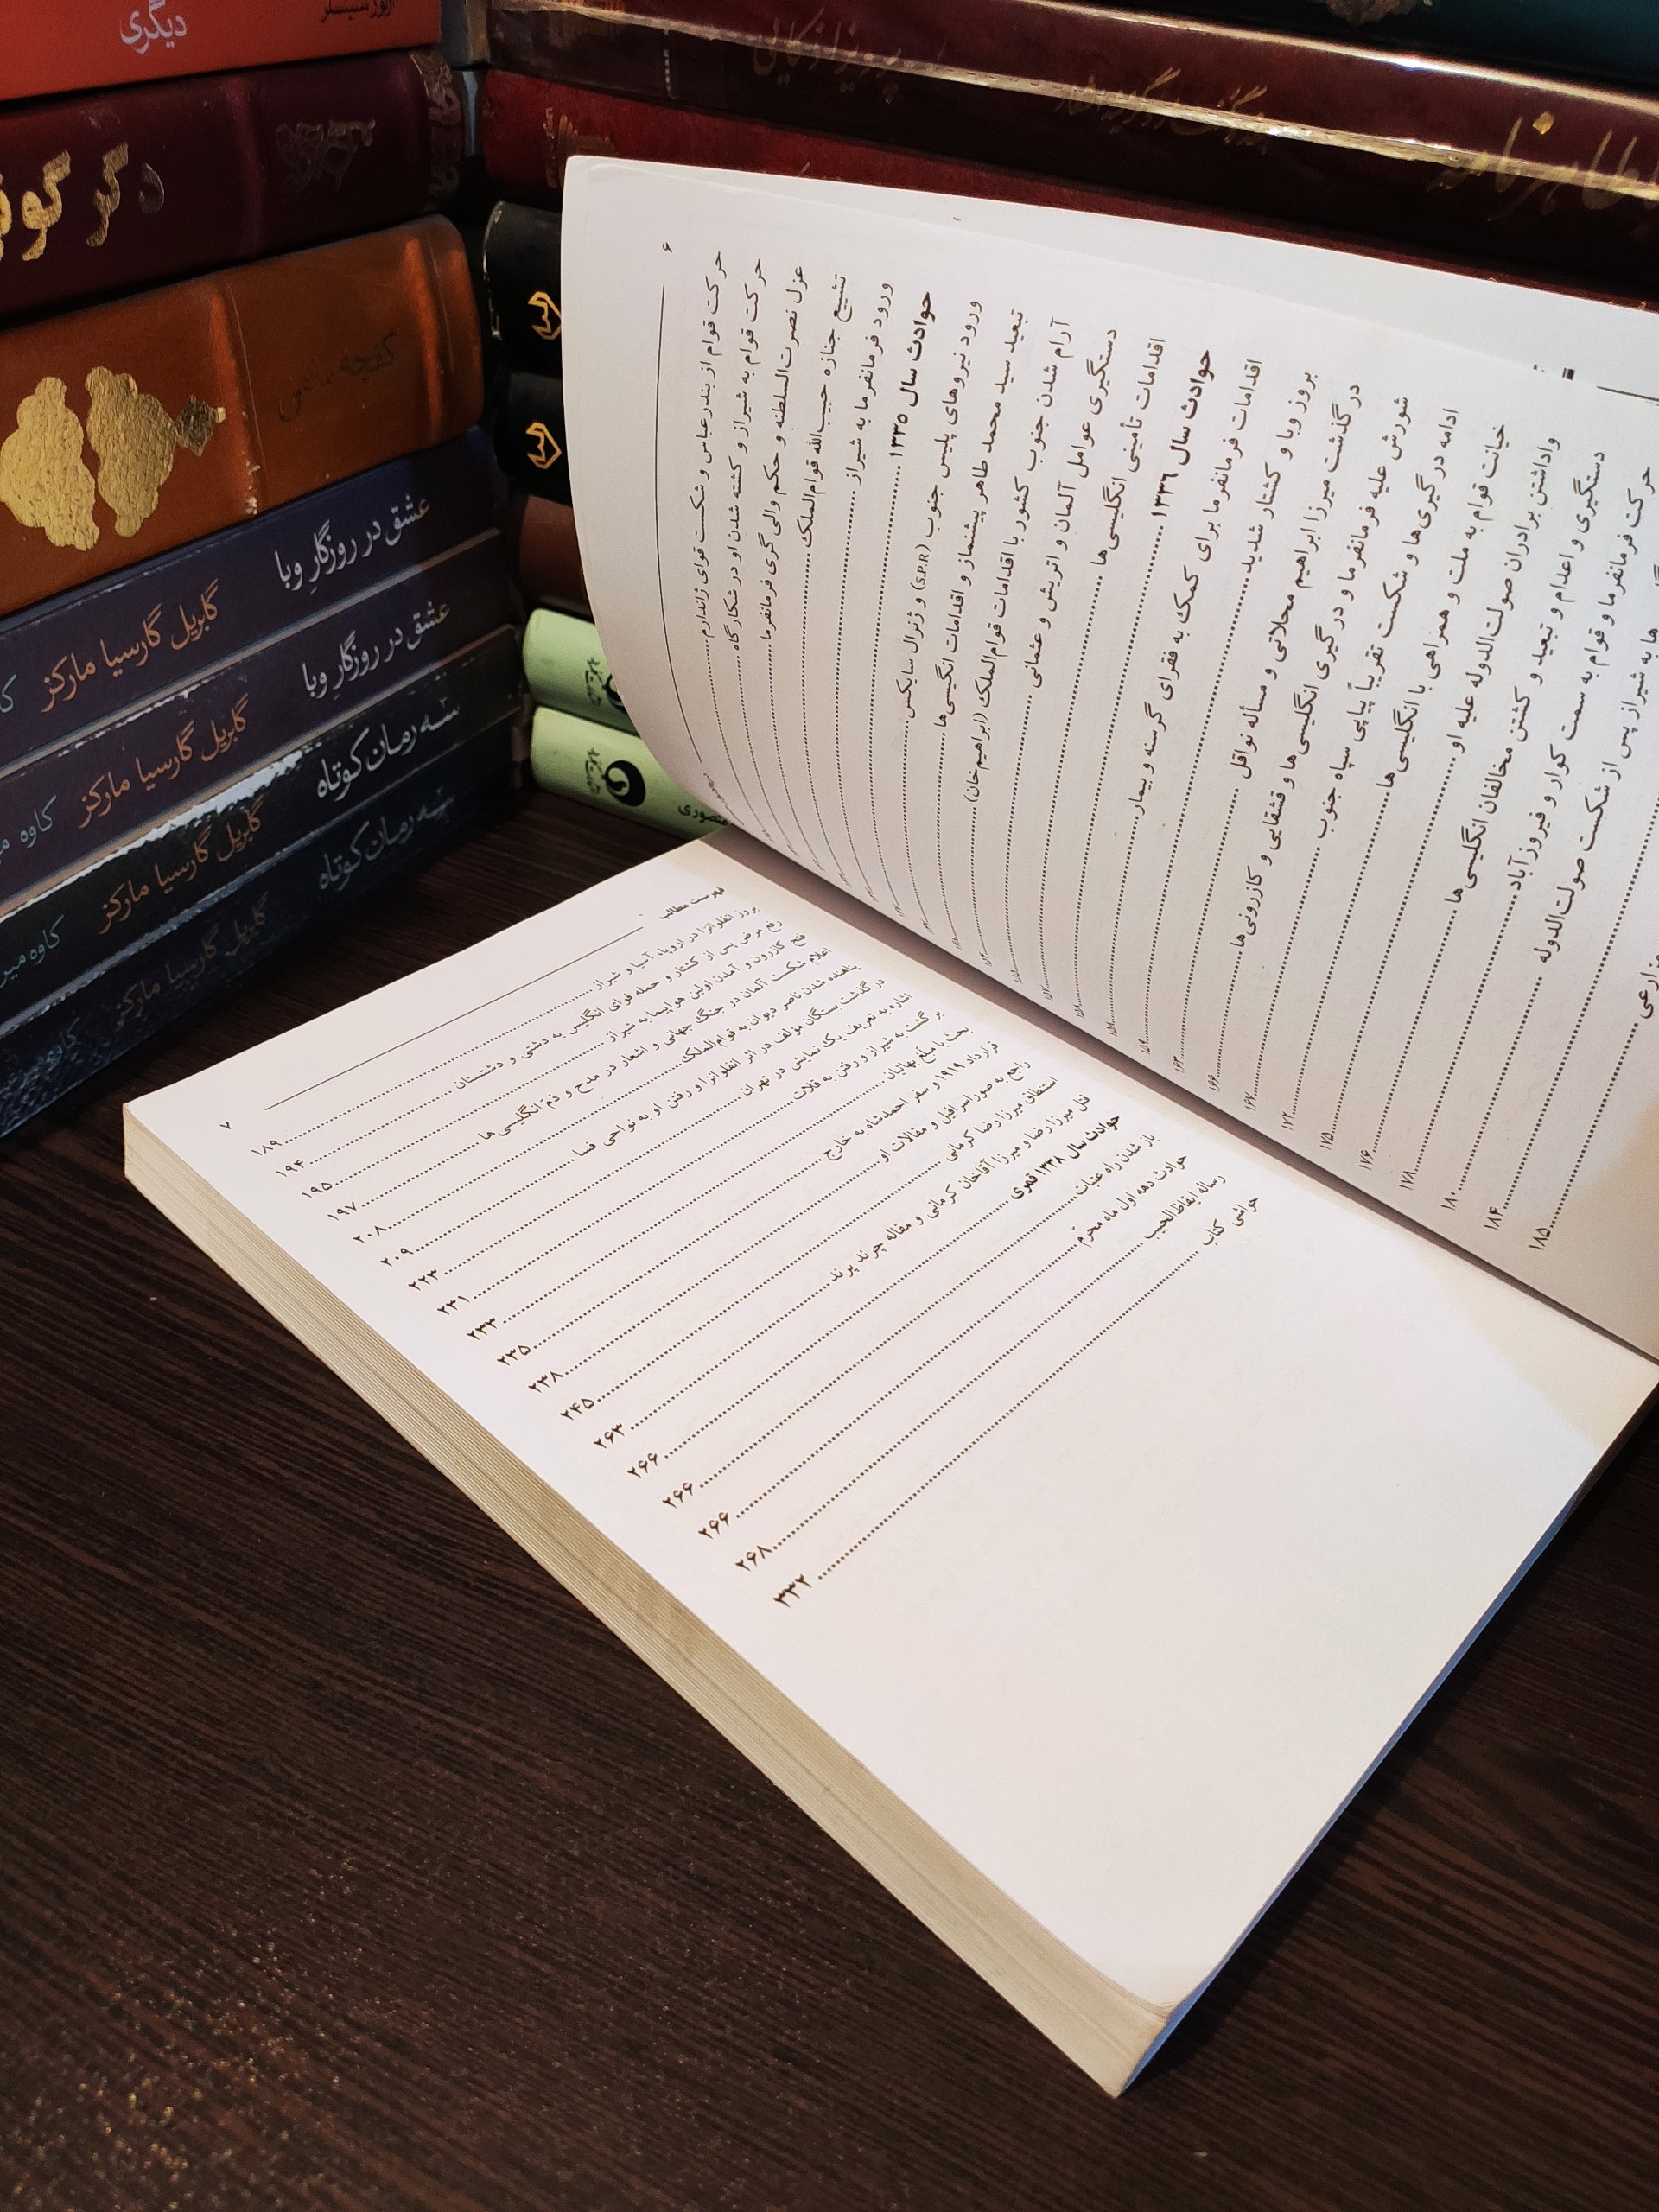 دیگری
عشق در روزگارِ وبا
گابریل گارسیا مارکز
عشق در روزگارِ وبا
گابریل گارسیا مارکز
کاوه
سه رمان کوتاه
گابریل گارسیا مارکز
کاوه میر
سه رمان کوتاه
گابریل گارسیا مارکز
منصوری
۶
حرکت قوام از بندرعباس و شکست قوای ژاندارم
حرکت قوام به شیراز و کشته شدن او در شکارگاه
عزل نصرت‌السلطنه و حکم والی گری فرمانفرما
تشییع جنازه حبیب‌الله قوام‌الملک
ورود فرمانفرما به شیراز
حوادث سال ۱۳۳۵
ورود نیروهای پلیس جنوب (S.P.R) و ژنرال سایکس
تبعید سید محمد طاهر پیشنماز و اقدامات انگلیسی‌ها
آرام شدن جنوب کشور با اقدامات قوام‌الملک (ابراهیم‌خان)
دستگیری عوامل آلمان و اتریش و عثمانی
اقدامات تأمینی انگلیسی‌ها
حوادث سال ۱۳۳۶
اقدامات فرمانفرما برای کمک به فقرای گرسنه و بیمار
بروز وبا و کشتار شدید
درگذشت میرزا ابراهیم محلاتی و مسأله نوافل ۱۶۶
شورش علیه فرمانفرما و درگیری انگلیسی‌ها و قشقایی و کازرونی‌ها ۱۶۷
ادامه درگیری‌ها و شکست تقریباً پیاپی سپاه جنوب ۱۷۲
خیانت قوام به ملت و همراهی با انگلیسی‌ها ۱۷۵
واداشتن برادران صولت‌الدوله علیه او ۱۷۶
دستگیری و اعدام و تبعید و کشتن مخالفان انگلیسی‌ها ۱۷۸
حرکت فرمانفرما و قوام به سمت کوار و فیروزآباد ۱۸۰
ها به شیراز پس از شکست صولت‌الدوله ۱۸۴
۱۸۵
فهرست مطالب
۷
بروز آنفلوانزا در اروپا، آسیا و شیراز ۱۸۹
رفع مرض پس از کشتار و حمله قوای انگلیس به دشتی و دشتستان ۱۹۴
فتح کازرون و آمدن اولین هواپیما به شیراز ۱۹۵
اعلام شکست آلمان در جنگ جهانی و اشعار در مدح و ذم انگلیسی‌ها ۱۹۷
پناهنده شدن ناصر دیوان به قوام‌الملک ۲۰۸
درگذشت بستگان مؤلف در اثر آنفلوانزا و رفتن او به نواحی فسا ۲۰۹
اشاره به تعریف یک نمایش در تهران ۲۲۳
برگشت به شیراز و رفتن به قلات ۲۳۱
بحث با مبلّغ بهائیان ۲۳۳
قرارداد ۱۹۱۹ و سفر احمدشاه به خارج ۲۳۵
راجع به صوراسرافیل و مقالات او ۲۳۸
استنطاق میرزا رضا کرمانی ۲۴۵
قتل میرزا رضا و میرزا آقاخان کرمانی و مقاله چرند پرند ۲۶۳
حوادث سال ۱۳۳۸ قمری ۲۶۶
باز شدن راه عتبات ۲۶۶
حوادث دهه اول ماه محرّم ۲۶۶
رساله ایقاظ‌الحبیب ۲۶۸
حواشی کتاب ۳۳۲